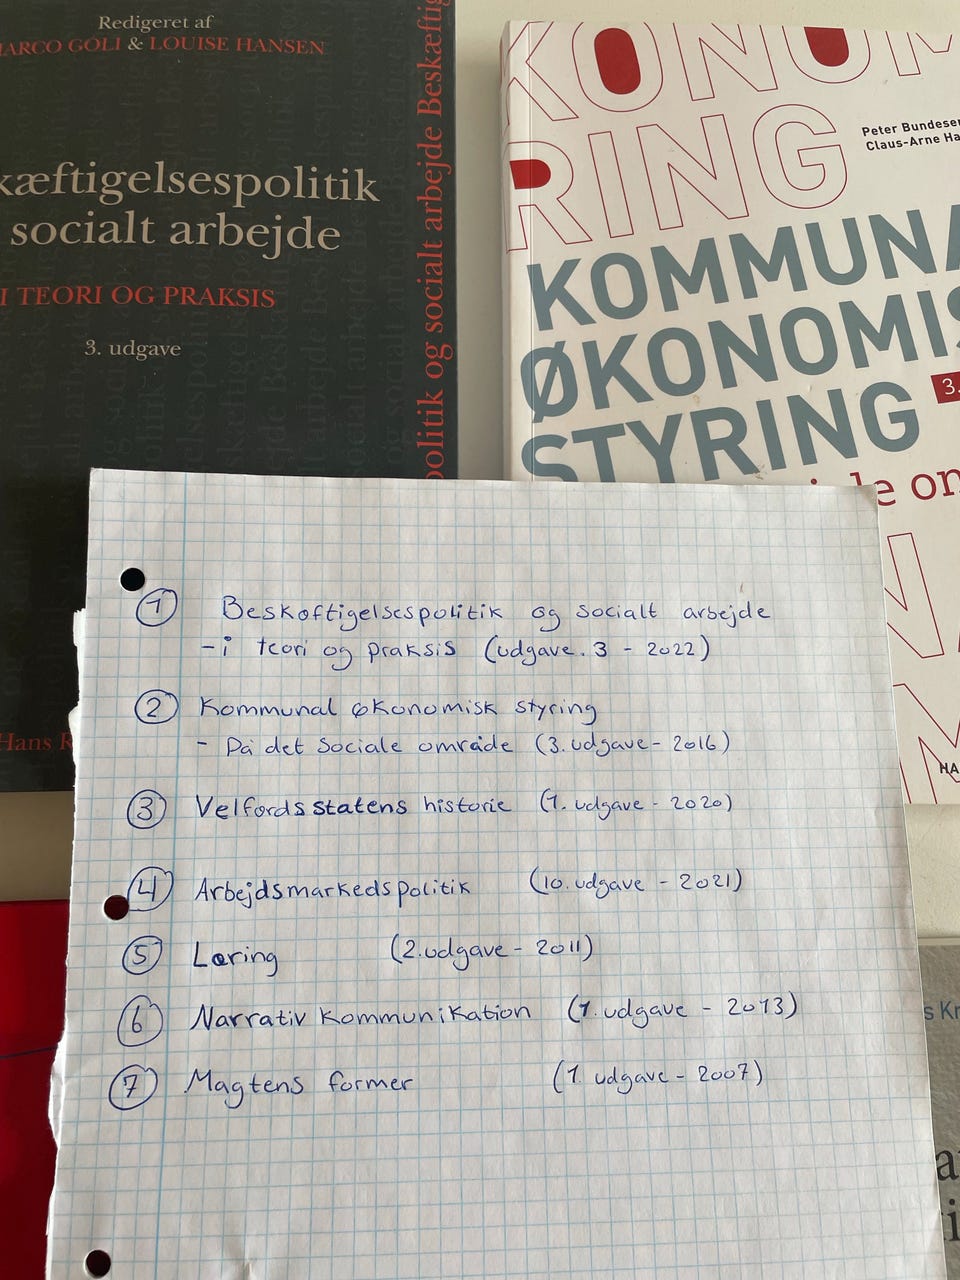 Redigeret af
MARCO GOLI & LOUISE HANSEN
kæftigelsespolitik
socialt arbejde
I TEORI OG PRAKSIS
3. udgave
politik og socialt arbejde Beskæftig
Hans R
KONOM
RING
Peter Bundesen
Claus-Arne Ha
KOMMUNA
ØKONOMIS
STYRING
3.
le om
HA
s Kr
① Beskæftigelsespolitik og socialt arbejde
- i teori og praksis (udgave. 3 - 2022)
② Kommunal økonomisk styring
- På det sociale område (3. udgave - 2016)
③ Velfærdsstatens historie (1. udgave - 2020)
④ Arbejdsmarkedspolitik (10. udgave - 2021)
⑤ Læring (2. udgave - 2011)
⑥ Narrativ kommunikation (1. udgave - 2013)
⑦ Magtens former (1. udgave - 2007)